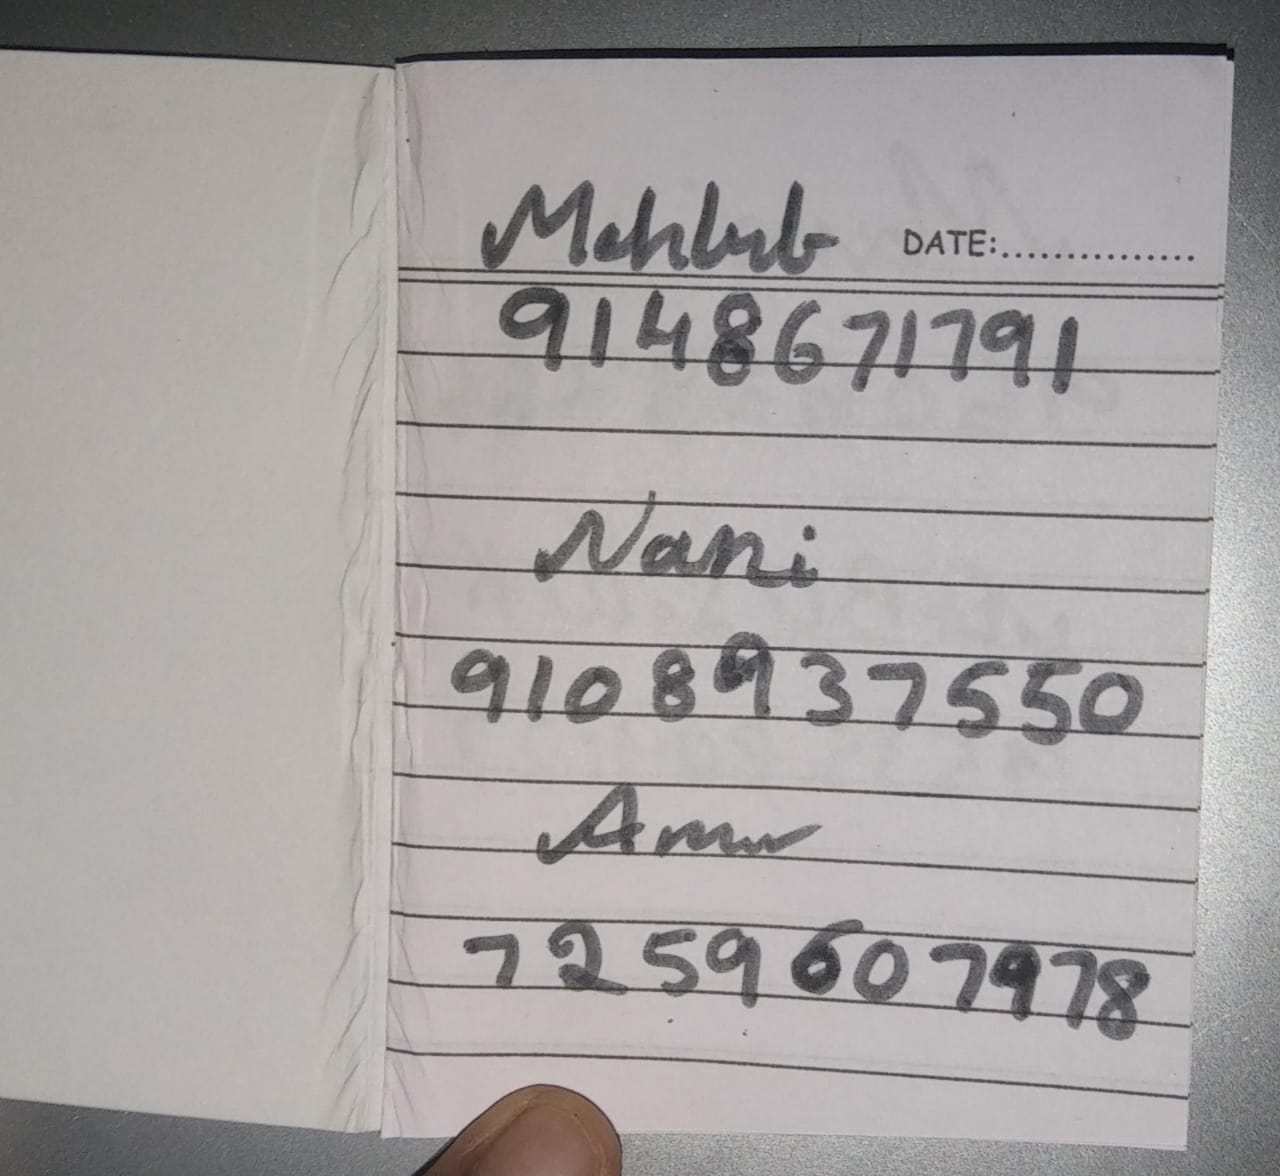 Mehbub
DATE:...............
9148671791
Nani
9108937550
7259607978